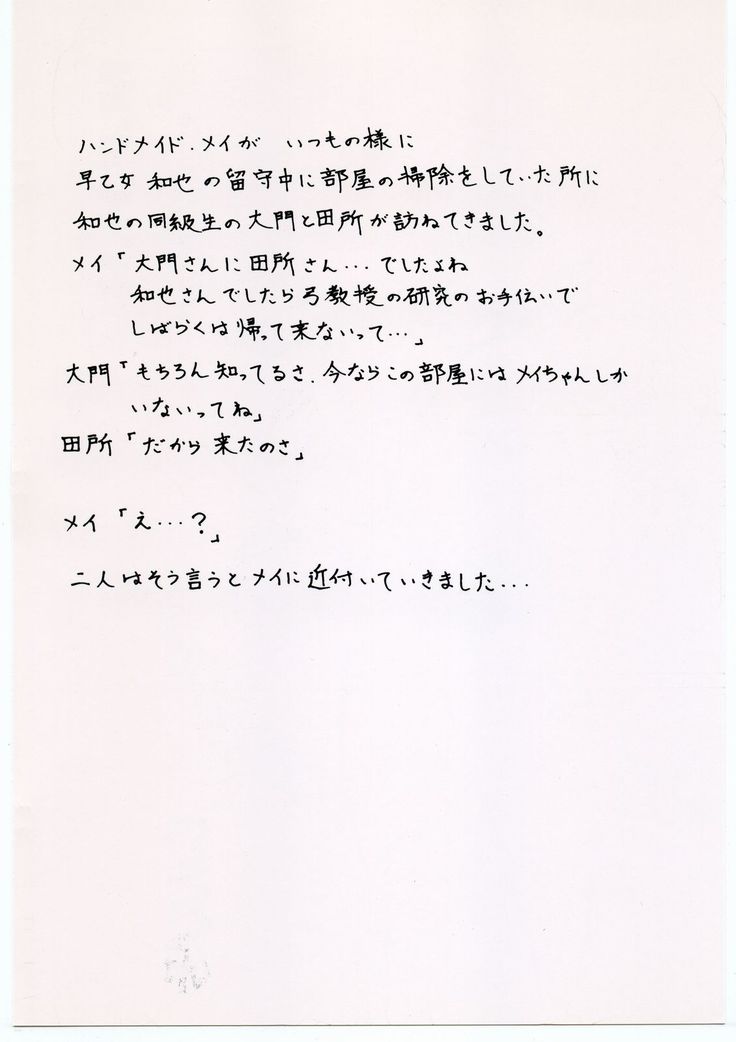 ハンドメイド.メイが いつもの様に
早乙女 和也の留守中に部屋の掃除をしていた所に
和也の同級生の大門と田所が訪ねてきました。
メイ「大門さんに田所さん...でしたよね
和也さんでしたら弓教授の研究のお手伝いで
しばらくは帰って来ないって...」
大門「もちろん知ってるさ.今ならこの部屋にはメイちゃんしか
いないってね」
田所「だから来たのさ」
メイ「え...?」
二人はそう言うとメイに近付いていきました...